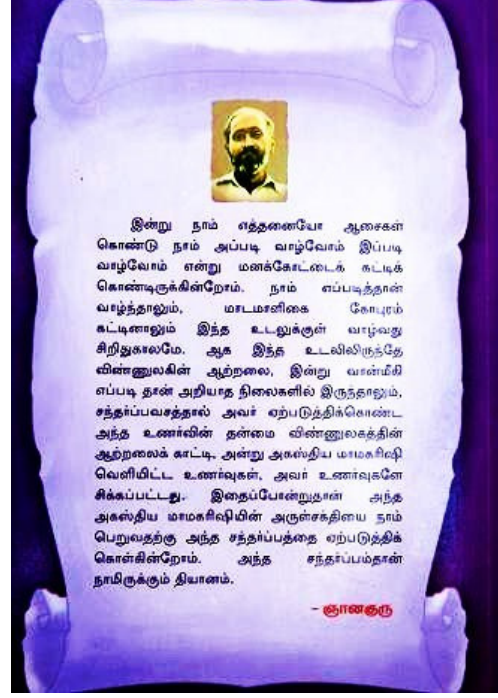 இன்று நாம் எத்தனையோ ஆசைகள்
கொண்டு நாம் அப்படி வாழ்வோம் இப்படி
வாழ்வோம் என்று மனக்கோட்டைக் கட்டிக்
கொண்டிருக்கின்றோம். நாம் எப்படித்தான்
வாழ்ந்தாலும், மாடமாளிகை கோபுரம்
கட்டினாலும் இந்த உடலுக்குள் வாழ்வது
சிறிதுகாலமே. ஆக இந்த உடலிலிருந்தே
விண்ணுலகின் ஆற்றலை, இன்று வான்மீகி
எப்படி தான் அறியாத நிலைகளில் இருந்தாலும்,
சந்தர்ப்பவசத்தால் அவர் ஏற்படுத்திக்கொண்ட
அந்த உணர்வின் தன்மை விண்ணுலகத்தின்
ஆற்றலைக் காட்டி, அன்று அகஸ்திய மாமகரிஷி
வெளியிட்ட உணர்வுகள், அவர் உணர்வுகளே
சிக்கப்பட்டது. இதைப்போன்றுதான் அந்த
அகஸ்திய மாமகரிஷியின் அருள்சக்தியை நாம்
பெறுவதற்கு அந்த சந்தர்ப்பத்தை ஏற்படுத்திக்
கொள்கின்றோம். அந்த சந்தர்ப்பம்தான்
நாமிருக்கும் தியானம்.
- ஞானகுரு